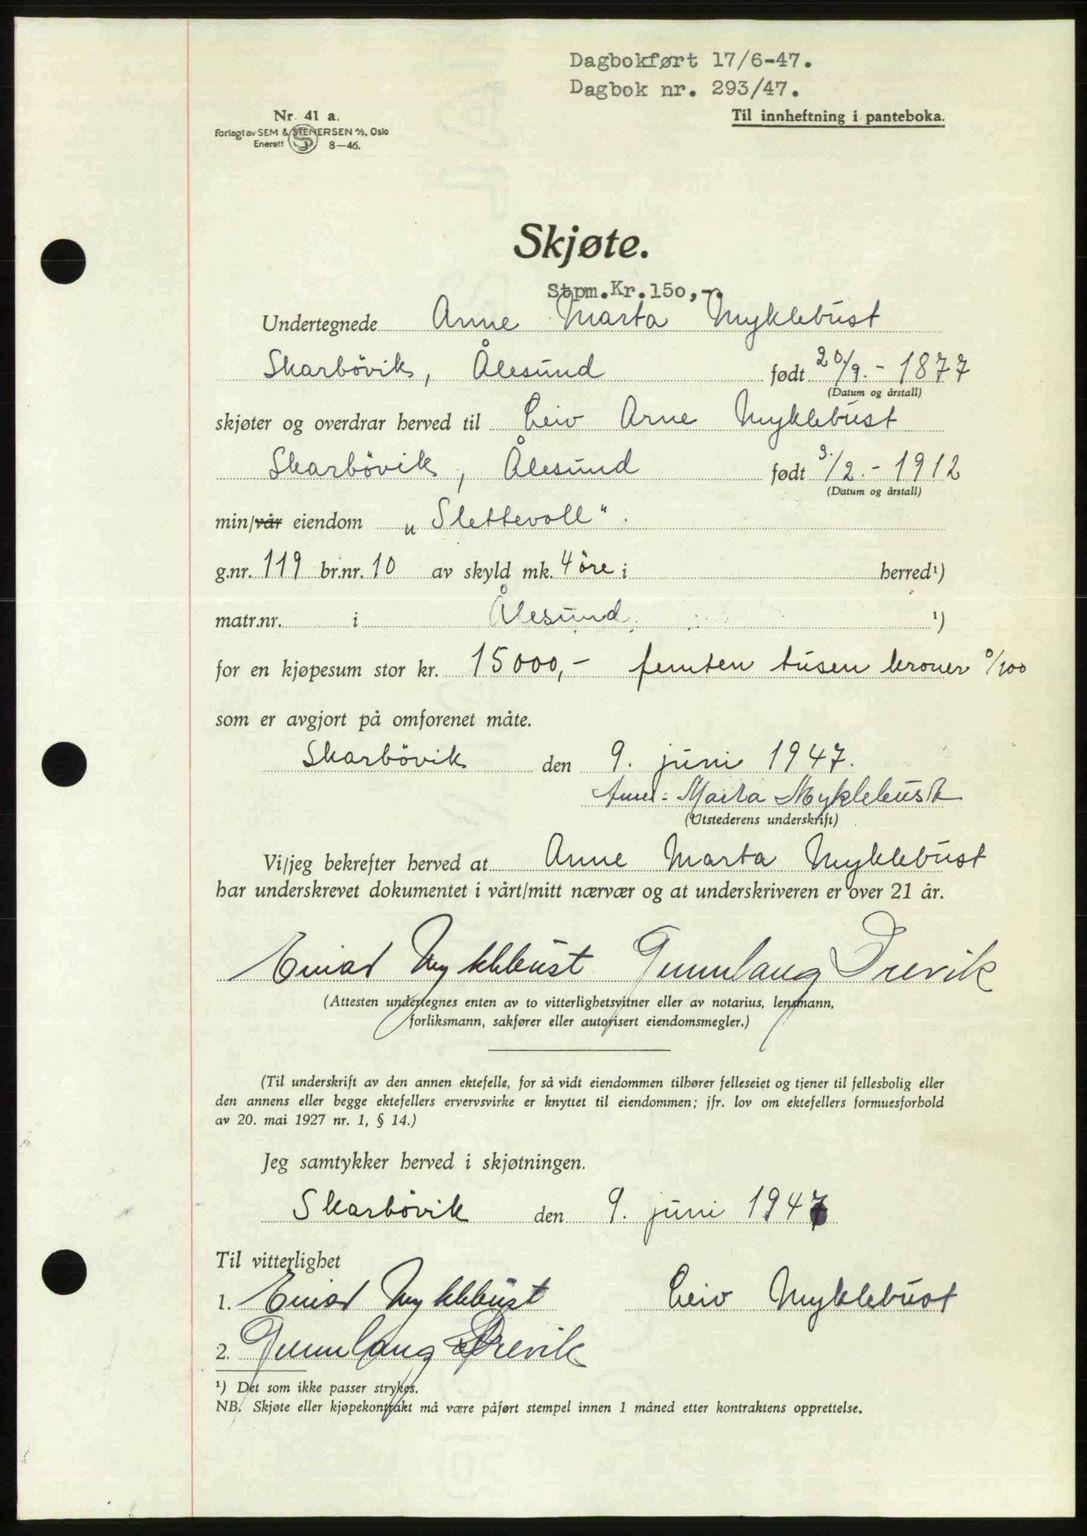 Dagbokført 17/6-47.
Dagbok nr. 293/47.
Til innheftning i panteboka.
Nr. 41 a.
Forlagt av SEM & STENERSEN A/S, Oslo
Enerett 8—46.
Skjøte.
Stpm.Kr.150,-.
Undertegnede Anne Marta Myklebust
Skarbövik, Ålesund født 20/9. - 1877
(Datum og årstall)
skjøter og overdrar herved til Leiv Arne Myklebust
Skarbövik, Ålesund født 3./2. - 1912
(Datum og årstall)
min/vår eiendom „Slettevoll".
g.nr. 119 br.nr. 10 av skyld mk. 4 öre i herred¹)
matr.nr. i Ålesund. ¹)
for en kjøpesum stor kr. 15000,- femten tusen kroner 0/100
som er avgjort på omforenet måte.
Skarbövik den 9. juni 1947.
Anne Marta Myklebust
(Utstederens underskrift)
Vi/jeg bekrefter herved at Anne Marta Myklebust
har underskrevet dokumentet i vårt/mitt nærvær og at underskriveren er over 21 år.
Einar Myklebust Gunnlaug Drevik
(Attesten undertegnes enten av to vitterlighetsvitner eller av notarius, lensmann,
forliksmann, sakfører eller autorisert eiendomsmegler.)
(Til underskrift av den annen ektefelle, for så vidt eiendommen tilhører felleseiet og tjener til fellesbolig eller
den annens eller begge ektefellers ervervsvirke er knyttet til eiendommen; jfr. lov om ektefellers formuesforhold
av 20. mai 1927 nr. 1, § 14.)
Jeg samtykker herved i skjøtningen.
Skarbövik den 9. juni 1947
Til vitterlighet
1. Einar Myklebust Leiv Myklebust
2. Gunnlaug Drevik
¹) Det som ikke passer strykes.
NB. Skjøte eller kjøpekontrakt må være påført stempel innen 1 måned etter kontraktens opprettelse.